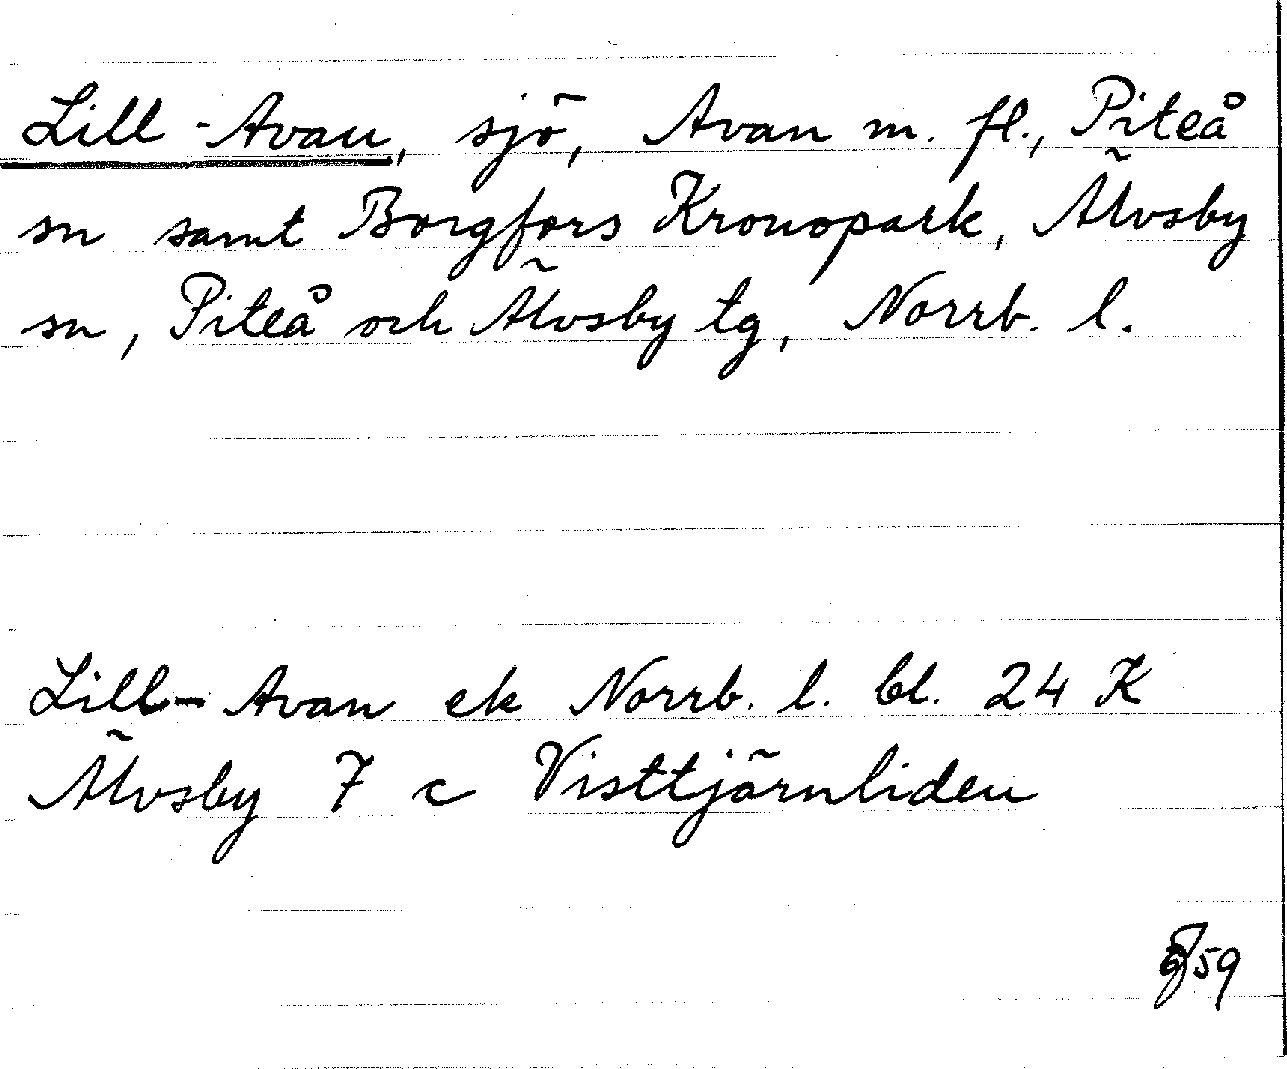 Lill-Avan, sjö, Avan m. fl., Piteå
sn samt Borgfors Kronopark, Älvsby
sn, Piteå och Älvsby tg, Norrb. l.
Lill-Avan ek Norrb. l. bl. 24 K
Älvsby 7 c Visttjärnliden
59